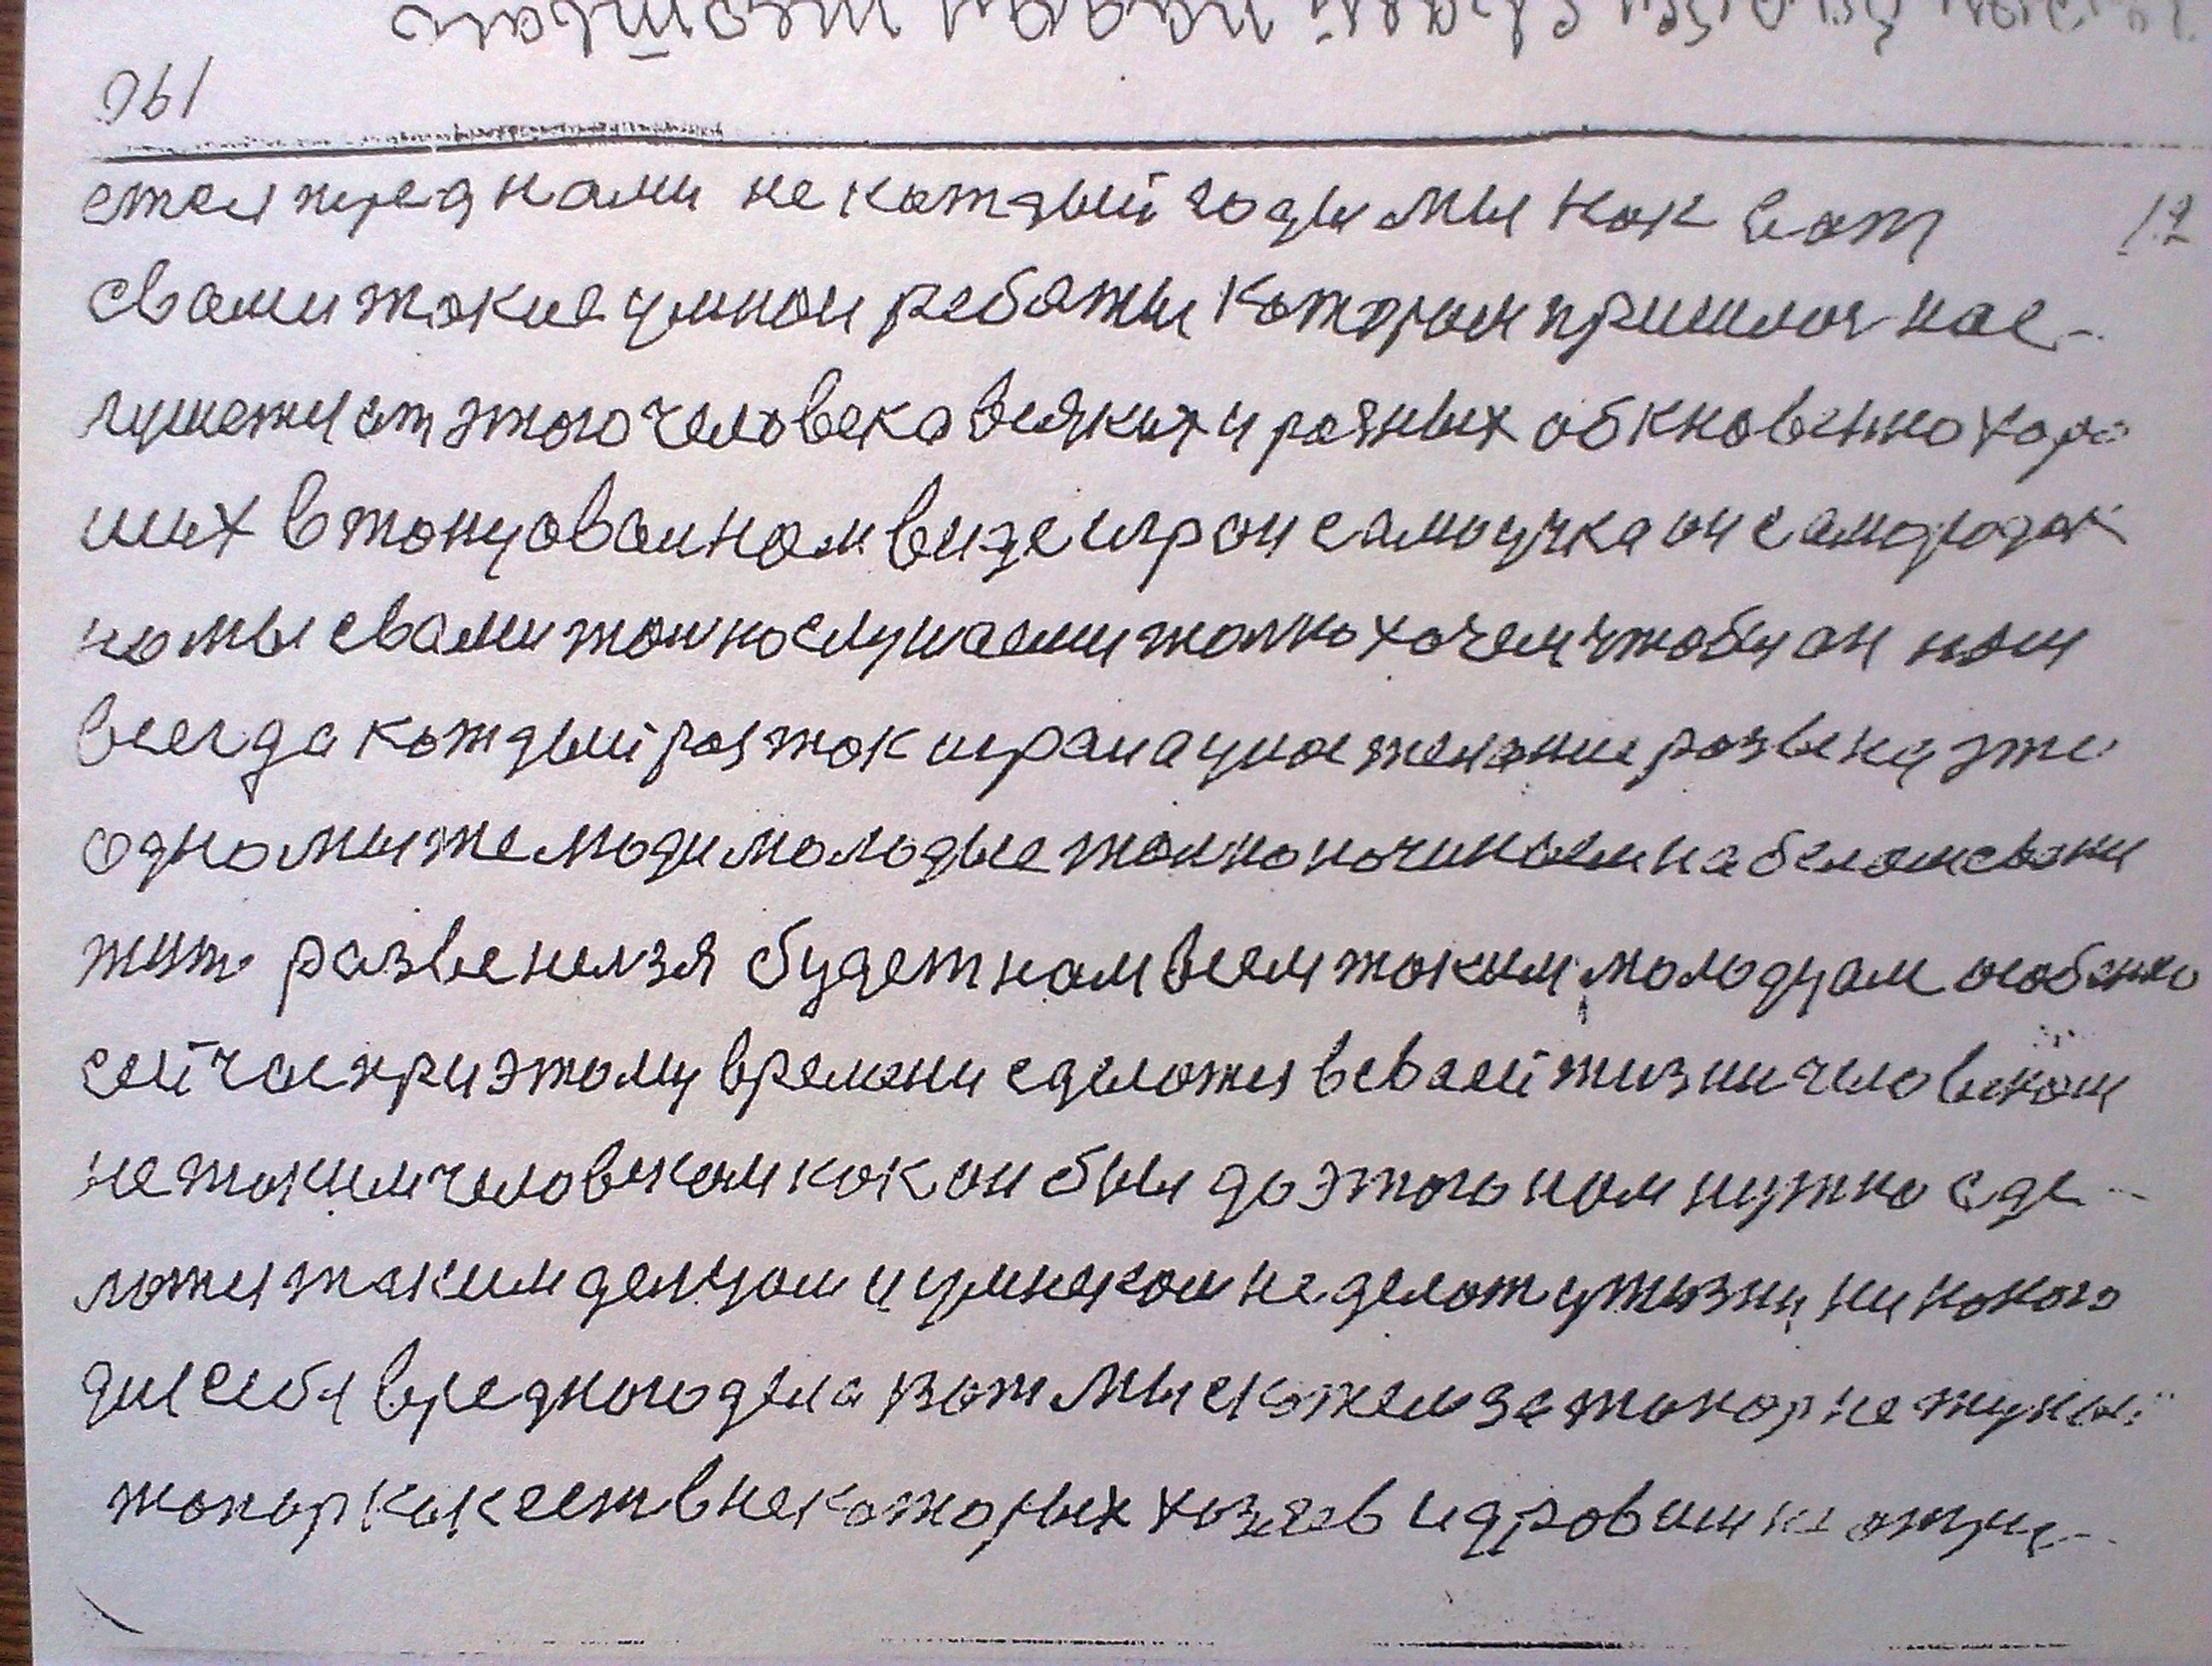 1961
ется перед нами не каждый годы мы как вот 12
с вами такие умнои ребяты которым пришлос нас-
лушети от этого человека всяких и разных обкновенно хоро
ших в танцованном виде игр он самоучка он самородок
но мы с вами толко слушаем и толко хочем чтобы он нам
всегда каждый раз так играл а у нас желание разве на это
одно мы же люди молодые толко начинаем на белом свети
жить разве нелзя будет нам всем таким молодцам особенно
сейчас при этому времени сделатся в своей жизни человеком
не таким человеком как он был до этого нам нужно сде-
латся таким делцом и умнеком не делат у жизни никокого
для себя вредного дела вот мы скажем за топор не тупый
топор как ест в некаторых хозяев и дровами не отру-